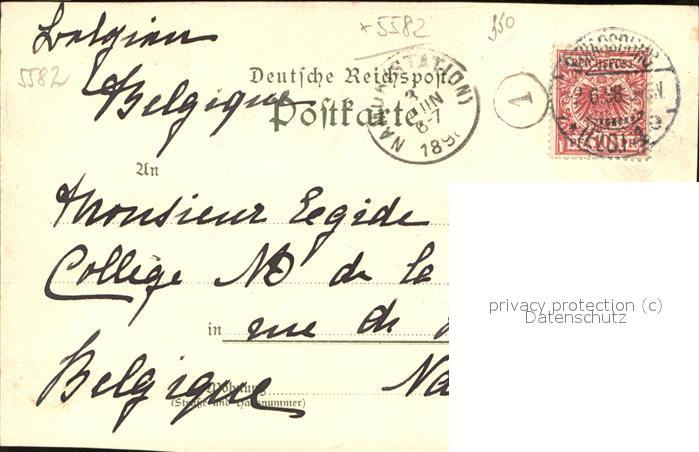 +5582
350
Belgien
5582
Belgique
Deutsche Reichspost
Postkarte
NAMUR (STATION)
3
JUIN
6-7
189
1
REICHSPOST
2.6.98
10 PF
An
Monsieur Egide
College ND de la
in rue de
Belgique Na
Wohnung
(Straße und Hausnummer)
privacy protection (c)
Datenschutz